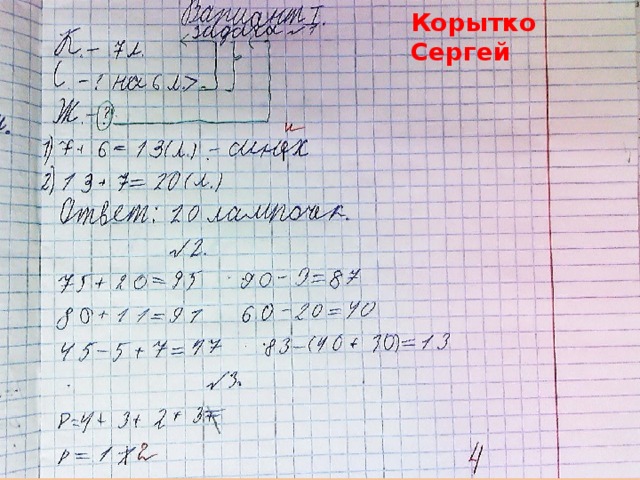 Корытко
Сергей
Вариант I.
задача №1
К. - 7 л.
С - ? на 6 л. >
Ж. - ?
1) 7 + 6 = 13 (л.) - синих
2) 13 + 7 = 20 (л.)
Ответ: 20 лампочек.
№2.
75 + 20 = 95 90 - 3 = 87
80 + 11 = 91 60 - 20 = 40
45 - 5 + 7 = 47 83 - (40 + 30) = 13
№3.
P = 4 + 3 + 2 + 3
P = 12
4